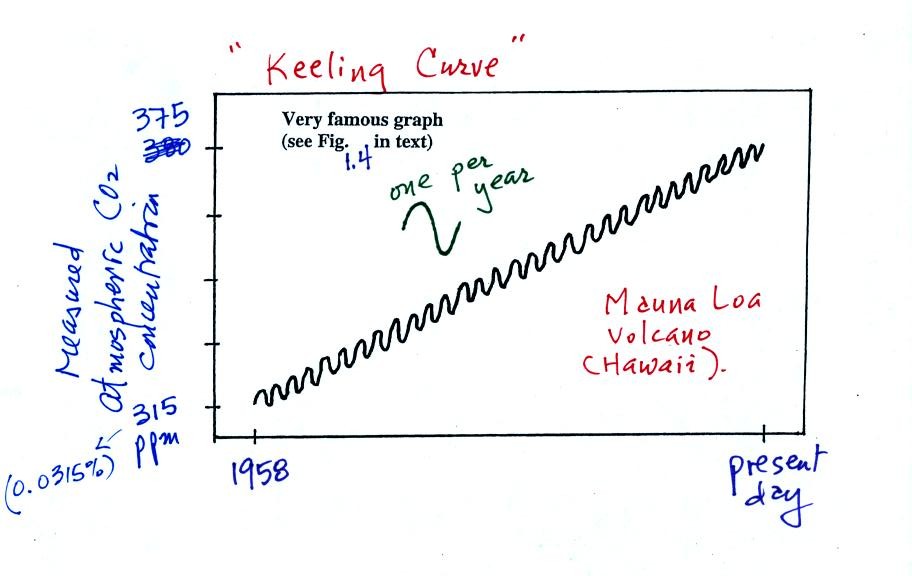 "Keeling Curve"
375
Very famous graph
(see Fig. 1.4 in text)
one per
year
Measured
atmospheric CO2
concentration
Mauna Loa
Volcano
(Hawaii).
315
ppm
(0.0315%)
1958
present
day